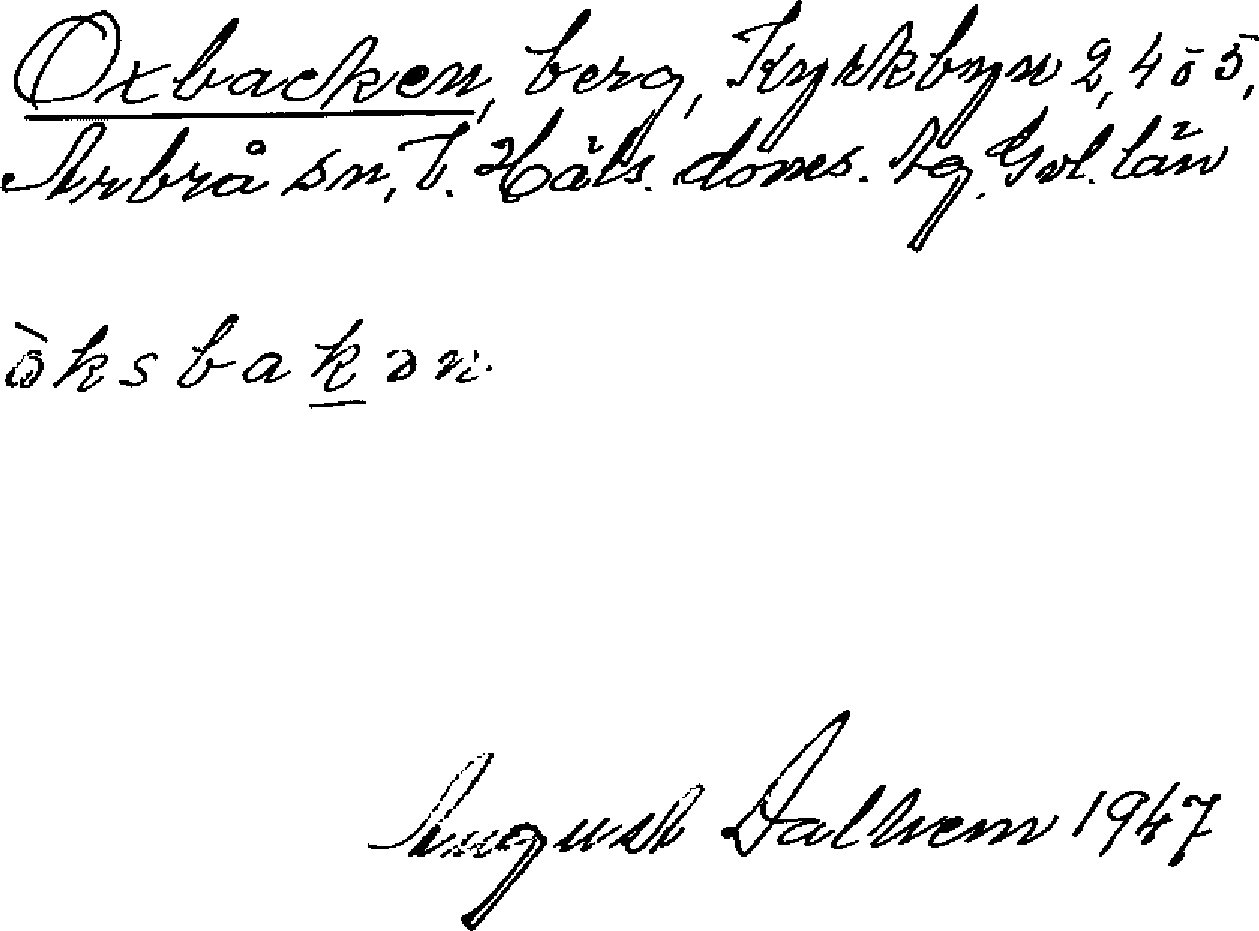 Oxbacken, berg, Kyrkbyn 2, 4 o 5,
Arbrå sn, V. Häls. doms. tg. Gvl. län
òksbak̲ən.
August Dalhem 1947